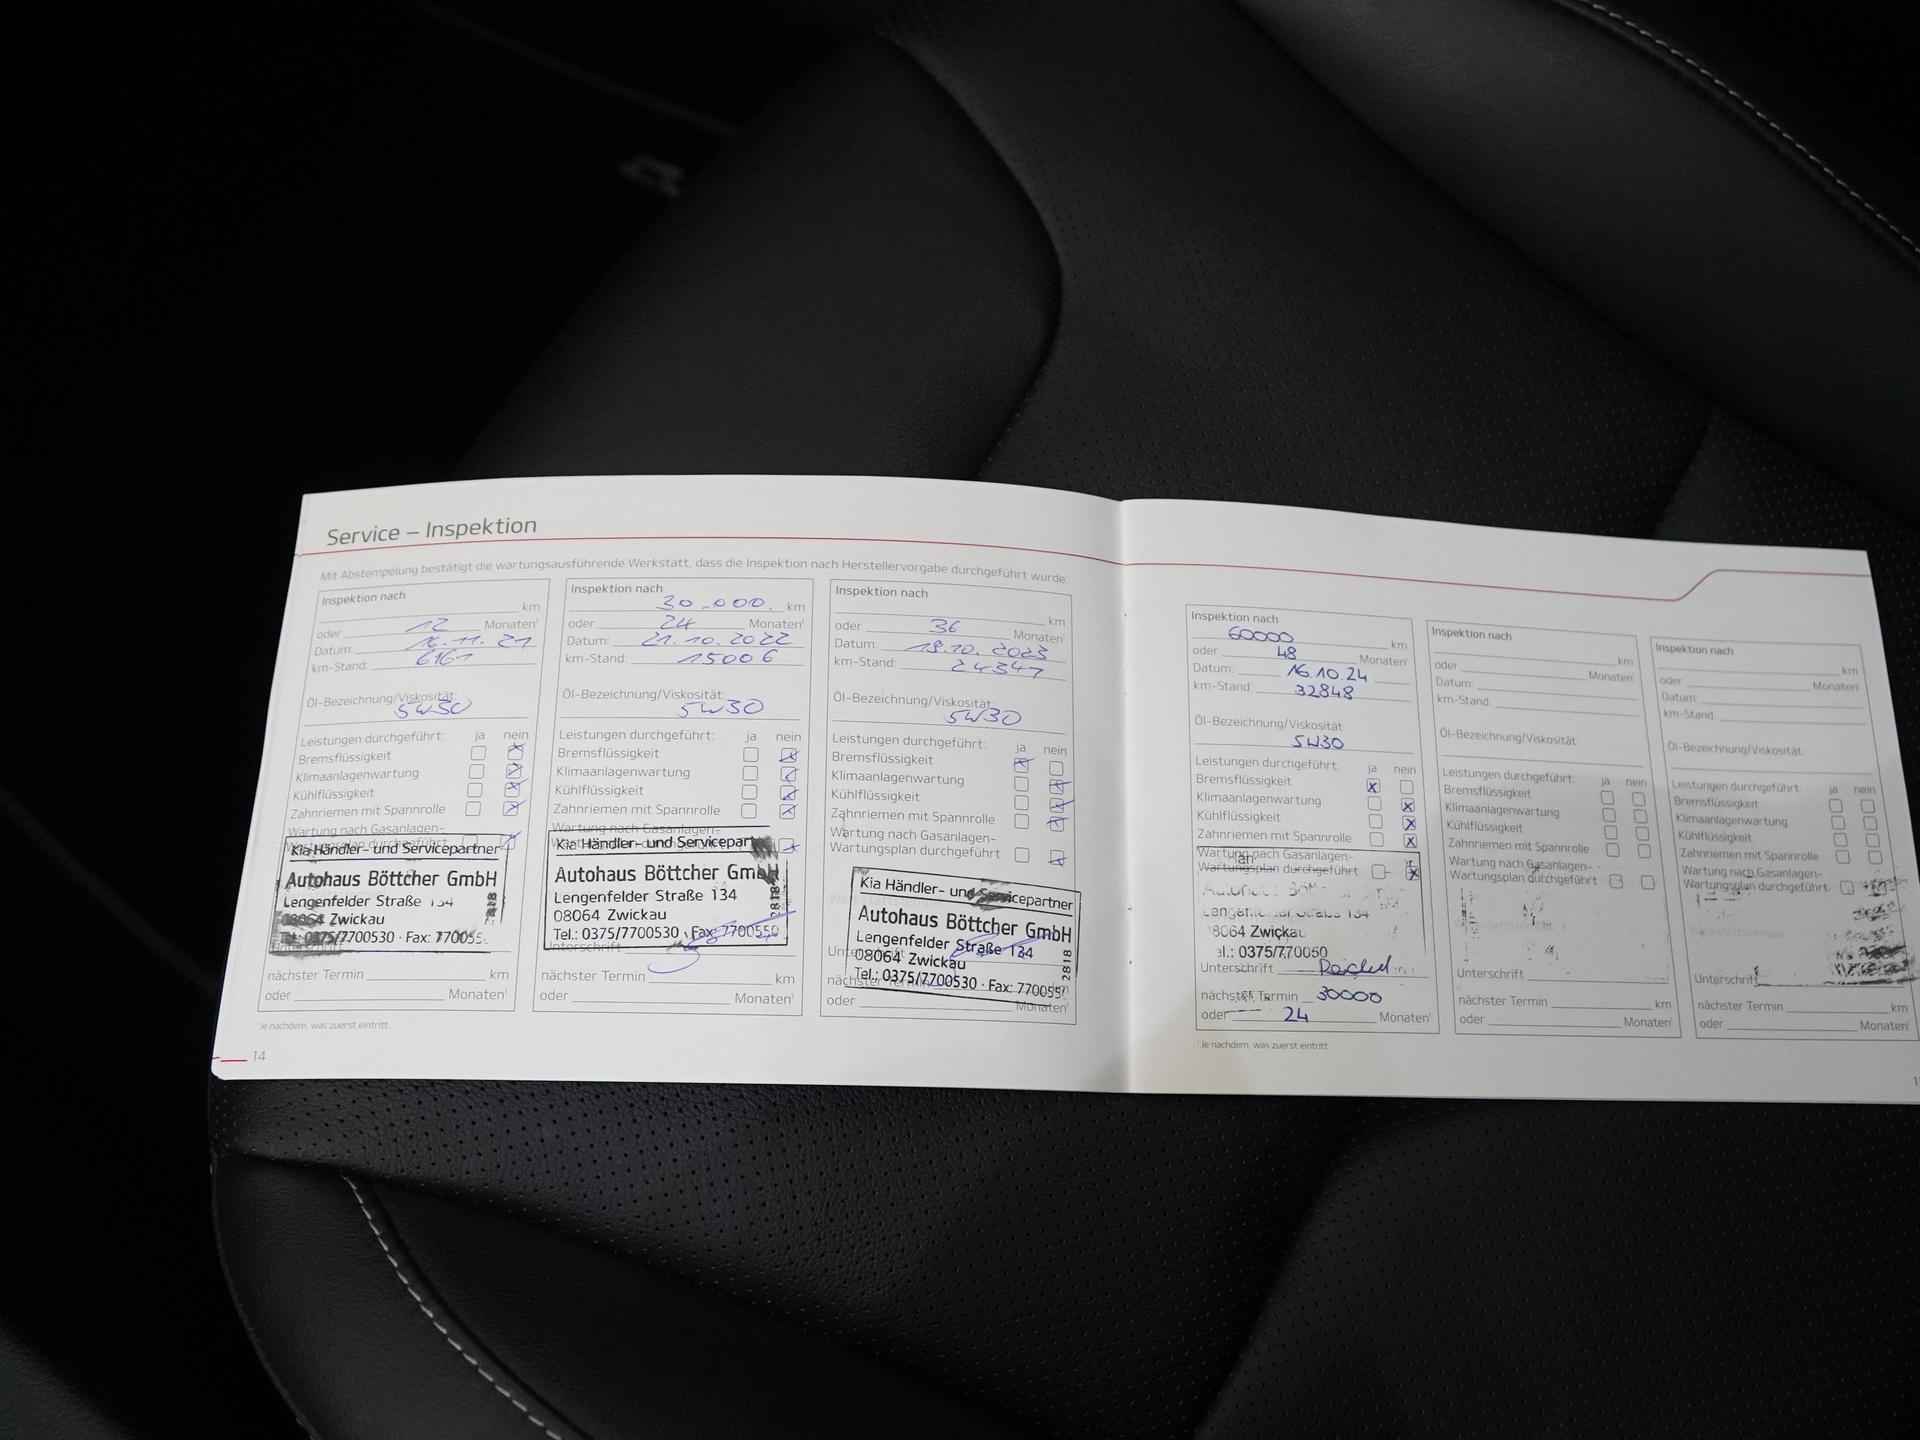 Service – Inspektion
Mit Abstempelung bestätigt die wartungsausführende Werkstatt, dass die Inspektion nach Herstellervorgabe durchgeführt wurde.
Inspektion nach
km
oder 12 Monaten¹
Datum: 16.11.21
km-Stand: 6161
Öl-Bezeichnung/Viskosität:
5W30
Leistungen durchgeführt: ja nein
Bremsflüssigkeit
Klimaanlagenwartung
Kühlflüssigkeit
Zahnriemen mit Spannrolle
Wartung nach Gasanlagen-
Kia Händler- und Servicepartner
Autohaus Böttcher GmbH
Lengenfelder Straße 134
08064 Zwickau
Tel.: 0375/7700530 · Fax: 770055
2818
nächster Termin km
oder Monaten¹
¹Je nachdem, was zuerst eintritt.
14
Inspektion nach
30.000. km
oder 24 Monaten¹
Datum: 21.10.2022
km-Stand: 15006
Öl-Bezeichnung/Viskosität:
5W30
Leistungen durchgeführt: ja nein
Bremsflüssigkeit
Klimaanlagenwartung
Kühlflüssigkeit
Zahnriemen mit Spannrolle
Wartung nach Gasanlagen-
Kia Händler- und Servicepart
Autohaus Böttcher GmbH
Lengenfelder Straße 134
08064 Zwickau
Tel.: 0375/7700530 · Fax: 7700550
2818
Unterschrift
nächster Termin km
oder Monaten¹
Inspektion nach
km
oder 36 Monaten¹
Datum: 19.10.2023
km-Stand: 24347
Öl-Bezeichnung/Viskosität:
5W30
Leistungen durchgeführt: ja nein
Bremsflüssigkeit
Klimaanlagenwartung
Kühlflüssigkeit
Zahnriemen mit Spannrolle
Wartung nach Gasanlagen-
Wartungsplan durchgeführt
Kia Händler- und Servicepartner
Autohaus Böttcher GmbH
Lengenfelder Straße 134
08064 Zwickau
Tel.: 0375/7700530 · Fax: 770055
2818
nächster Termin
oder Monaten¹
Inspektion nach
60000 km
oder 48 Monaten¹
Datum: 16.10.24
km-Stand: 32848
Öl-Bezeichnung/Viskosität
5W30
Leistungen durchgeführt: ja nein
Bremsflüssigkeit
Klimaanlagenwartung
Kühlflüssigkeit
Zahnriemen mit Spannrolle
Wartung nach Gasanlagen-
Wartungsplan durchgeführt
134
8064 Zwickau
el.: 0375/770050
Unterschrift
nächster Termin 30000
oder 24 Monaten¹
¹Je nachdem, was zuerst eintritt
Inspektion nach
km
oder Monaten¹
Datum:
km-Stand:
Öl-Bezeichnung/Viskosität:
Leistungen durchgeführt: ja nein
Bremsflüssigkeit
Klimaanlagenwartung
Kühlflüssigkeit
Zahnriemen mit Spannrolle
Wartung nach Gasanlagen-
Wartungsplan durchgeführt
Unterschrift
nächster Termin km
oder Monaten¹
Inspektion nach
km
oder Monaten¹
Datum:
km-Stand:
Öl-Bezeichnung/Viskosität:
Leistungen durchgeführt: ja nein
Bremsflüssigkeit
Klimaanlagenwartung
Kühlflüssigkeit
Zahnriemen mit Spannrolle
Wartung nach Gasanlagen-
Wartungsplan durchgeführt
Unterschrift
nächster Termin km
oder Monaten¹